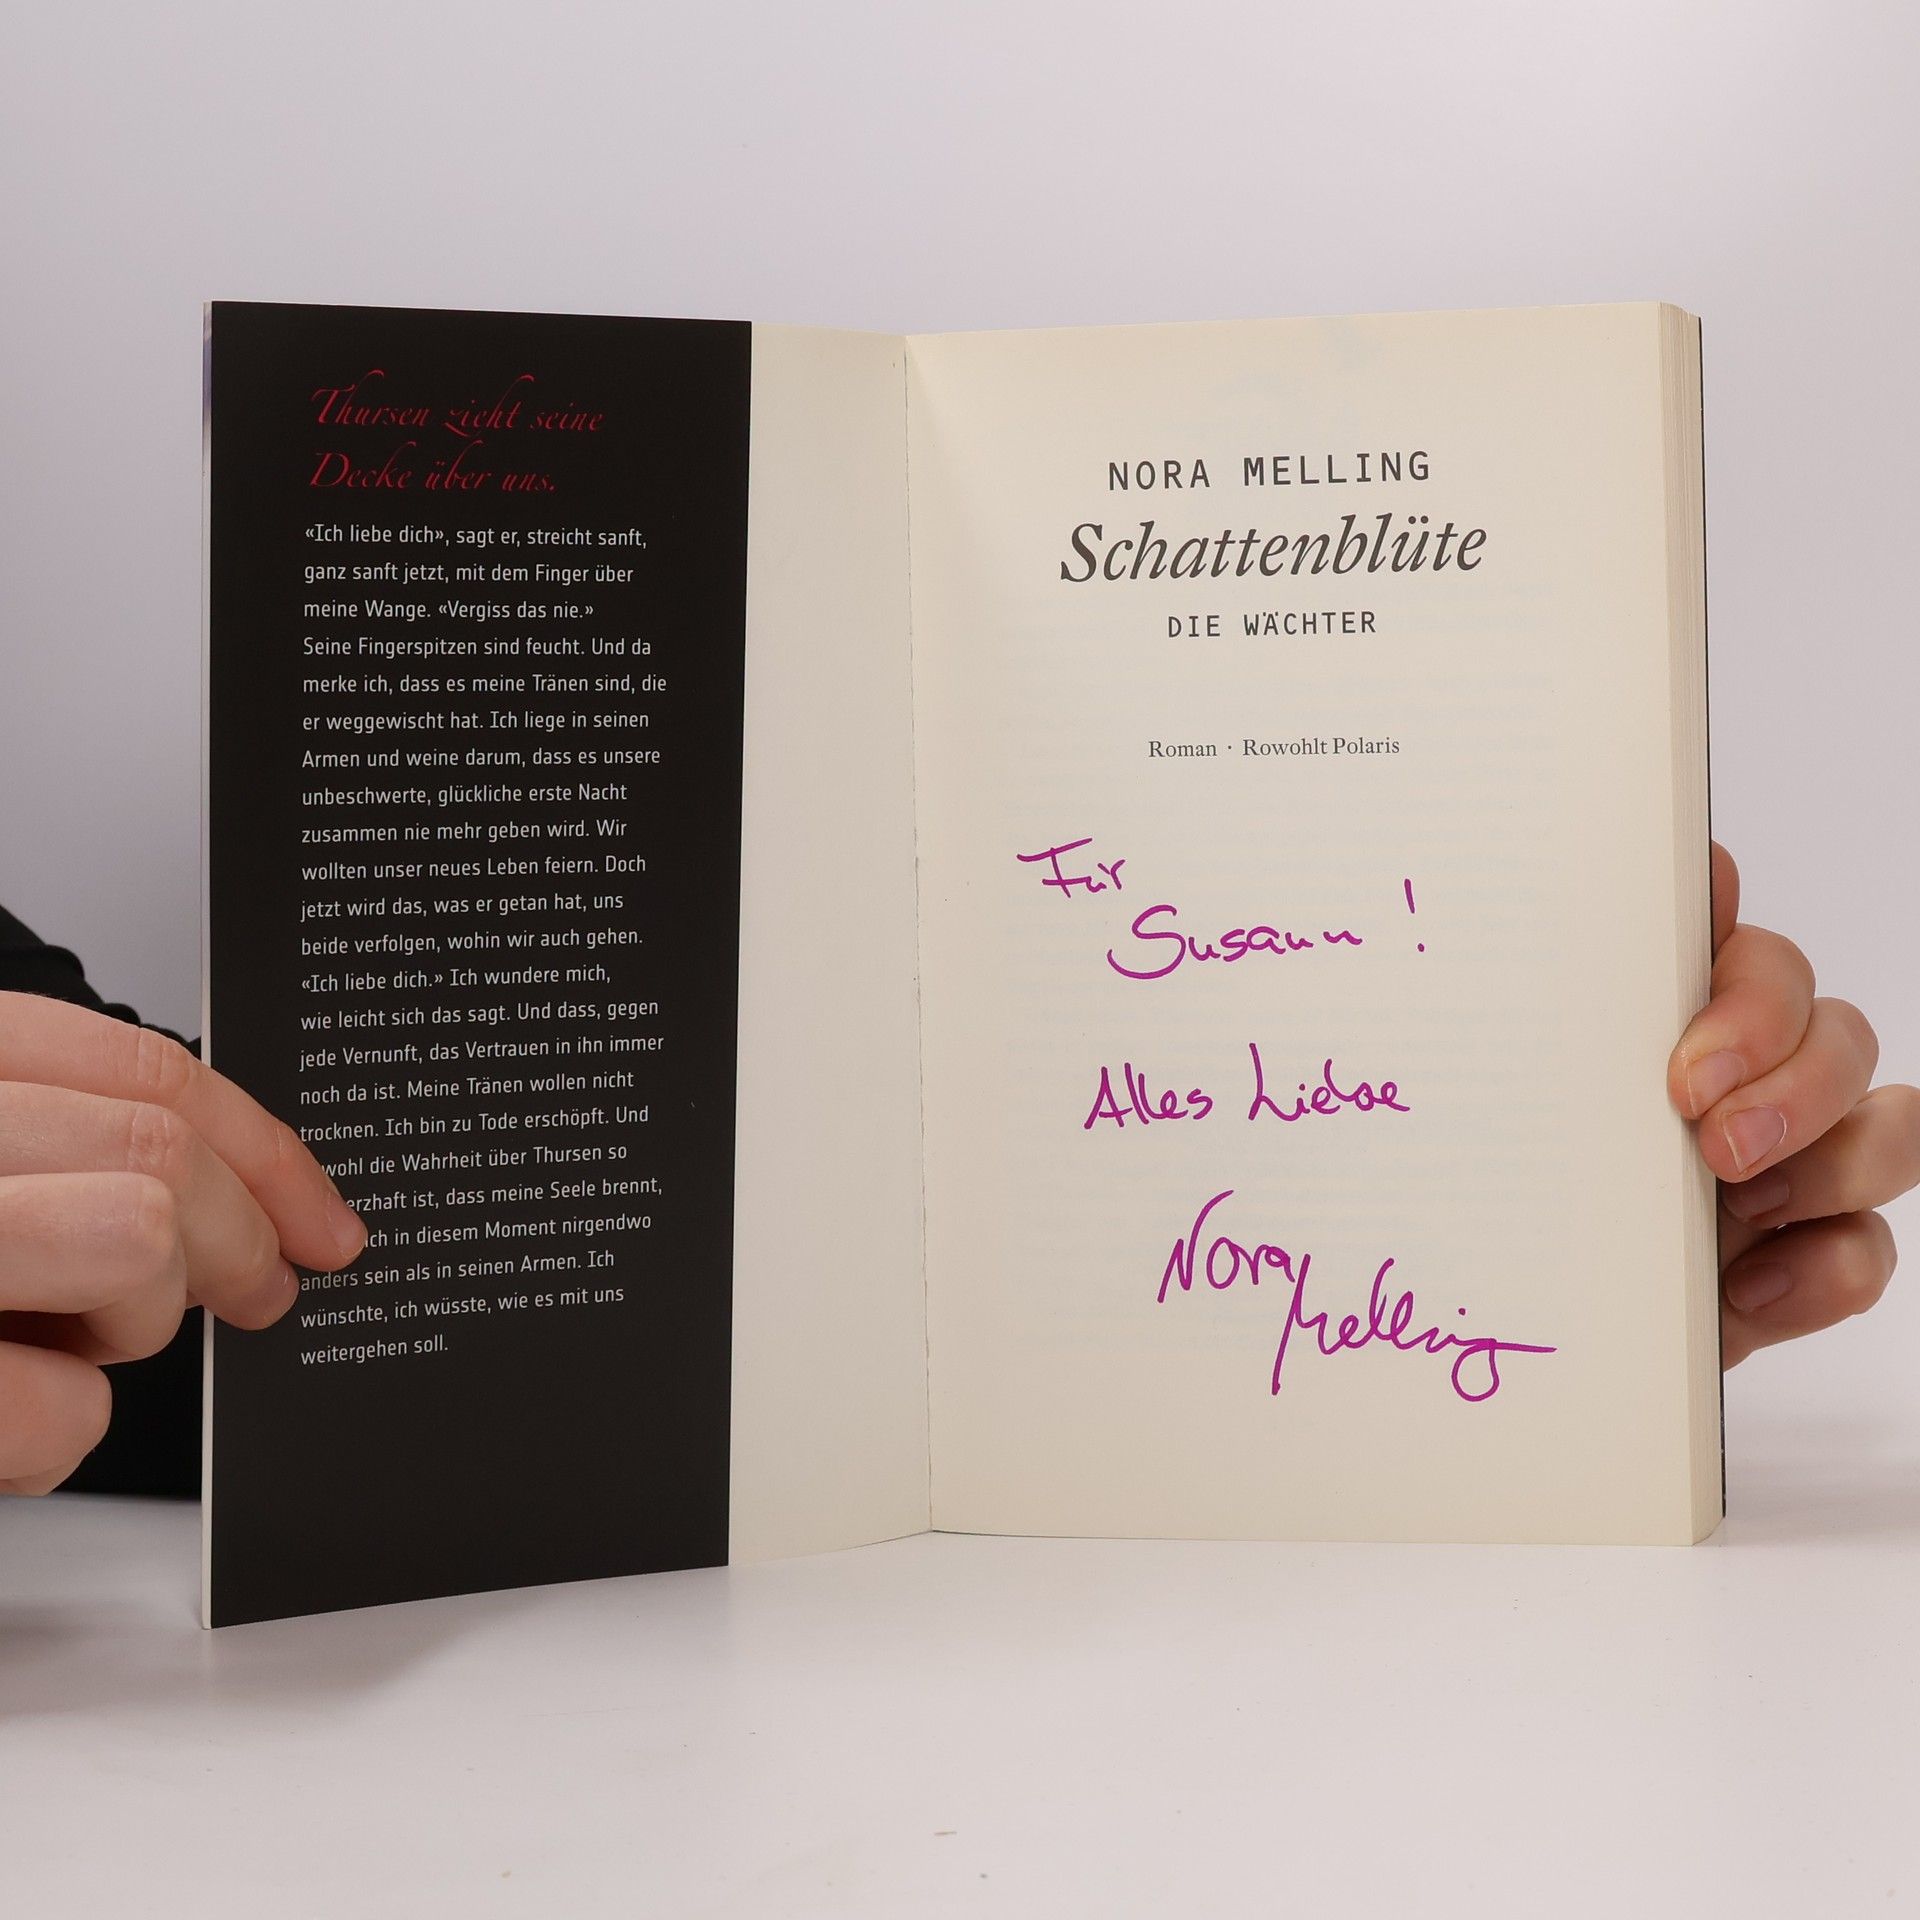 Thursen zieht seine
Decke über uns.
«Ich liebe dich», sagt er, streicht sanft,
ganz sanft jetzt, mit dem Finger über
meine Wange. «Vergiss das nie.»
Seine Fingerspitzen sind feucht. Und da
merke ich, dass es meine Tränen sind, die
er weggewischt hat. Ich liege in seinen
Armen und weine darum, dass es unsere
unbeschwerte, glückliche erste Nacht
zusammen nie mehr geben wird. Wir
wollten unser neues Leben feiern. Doch
jetzt wird das, was er getan hat, uns
beide verfolgen, wohin wir auch gehen.
«Ich liebe dich.» Ich wundere mich,
wie leicht sich das sagt. Und dass, gegen
jede Vernunft, das Vertrauen in ihn immer
noch da ist. Meine Tränen wollen nicht
trocknen. Ich bin zu Tode erschöpft. Und
wohl die Wahrheit über Thursen so
erzhaft ist, dass meine Seele brennt,
ich in diesem Moment nirgendwo
anders sein als in seinen Armen. Ich
wünschte, ich wüsste, wie es mit uns
weitergehen soll.
NORA MELLING
Schattenblüte
DIE WÄCHTER
Roman · Rowohlt Polaris
Für
Susann!
Alles Liebe
Nora
Melling